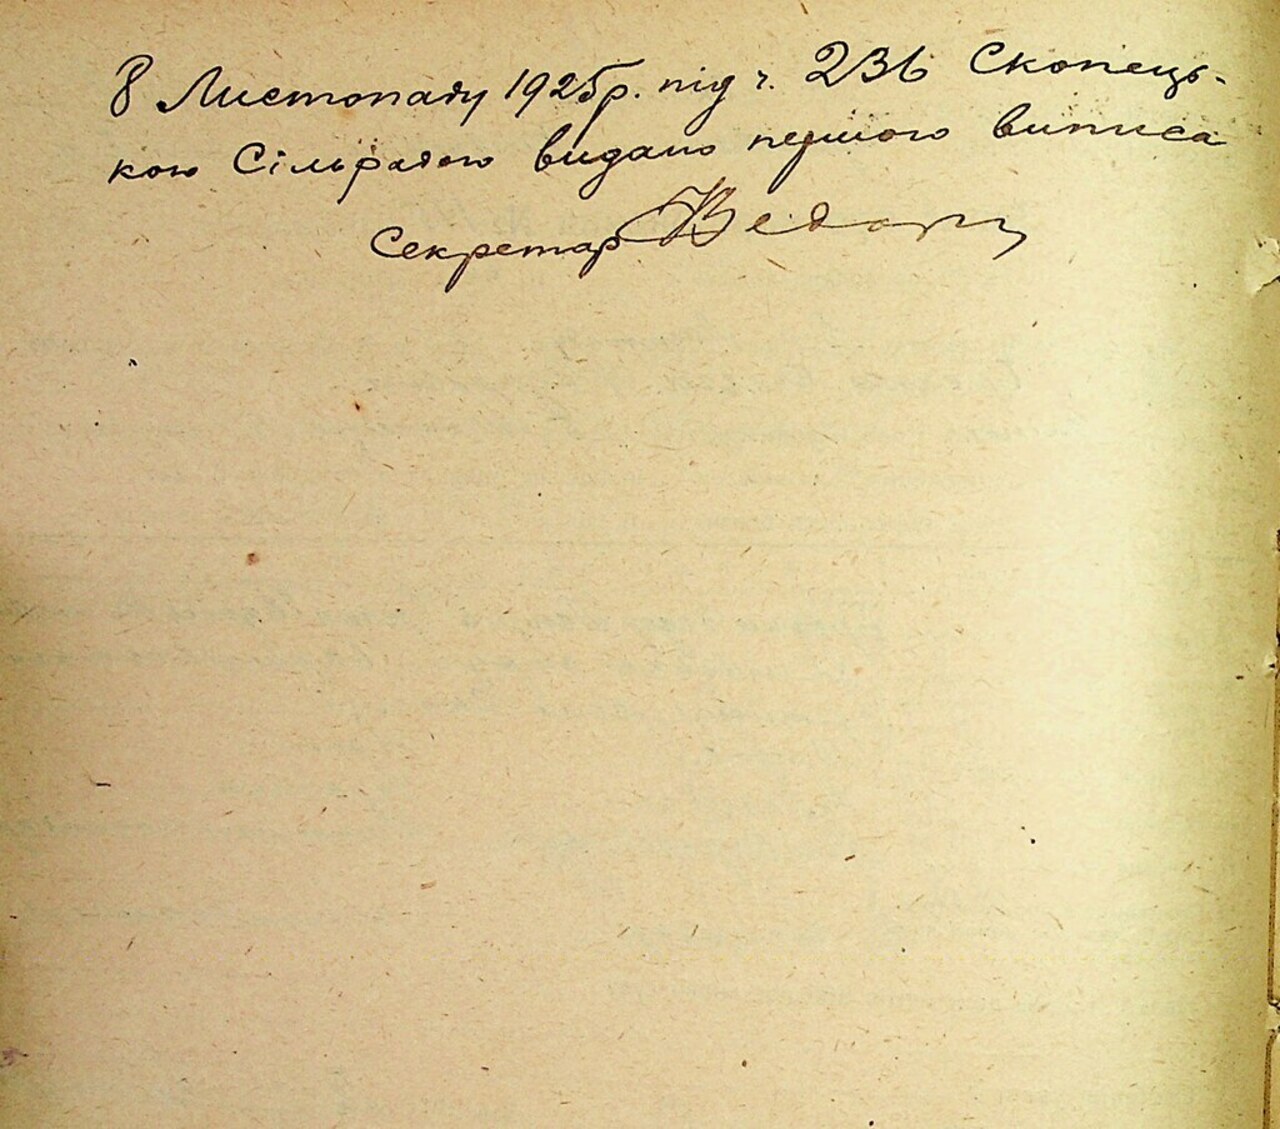 8 Листопаду 1925р. під ч. 236 Скопець-
кою Сільрадою видано першого виписа
Секретар